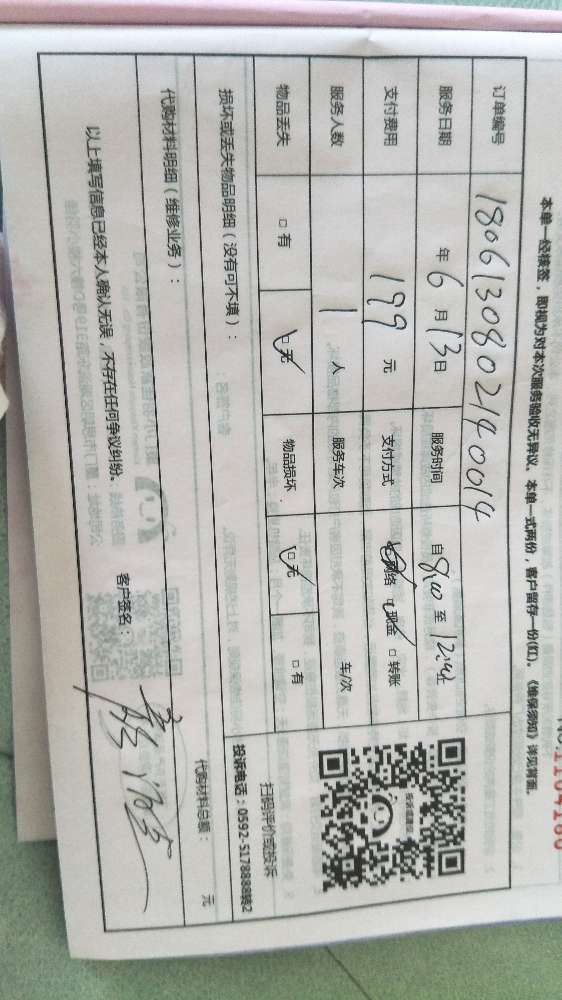 NO.1104180
本单一经核签，即视为对本次服务验收无异议。本单一式两份，客户留存一份(红)。《维保须知》详见背面。
订单编号 1806130802140014
服务日期 年 6 月 13 日 服务时间 自 8:00 至 12:00止
支付费用 199 元 支付方式 网络 现金 □ 转账
服务人数 1 人 服务车次 车/次
物品丢失 □ 有 □ 无 物品损坏 □ 无 □ 有
损坏或丢失物品明细（没有可不填）：
扫码评价或投诉
投诉电话：0592-5178888转2
代购材料明细（维修业务）：
代购材料总额： 元
以上填写信息已经本人确认无误，不存在任何争议纠纷。
客户签名：